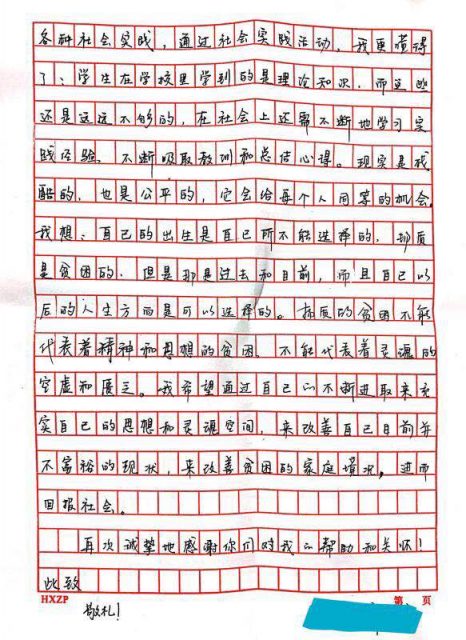 各种社会实践，通过社会实践活动，我更懂得
了：学生在学校里学到的是理论知识，而这些
还是远远不够的，在社会上还需不断地学习实
践经验，不断吸取教训和总结心得。现实是残
酷的，也是公平的，它会给每个人同等的机会。
我想：自己的出生是自己所不能选择的，物质
是贫困的，但是那是过去和目前，而且自己以
后的人生方面是可以选择的。物质的贫困不能
代表着精神和思想的贫困，不能代表着灵魂的
空虚和匮乏。我希望通过自己的不断进取来充
实自己的思想和灵魂空间，来改善自己目前并
不富裕的现状，来改善贫困的家庭境况，进而
回报社会。
再次诚挚地感谢你们对我的帮助和关怀！
此致
HXZP 第 页
敬礼！